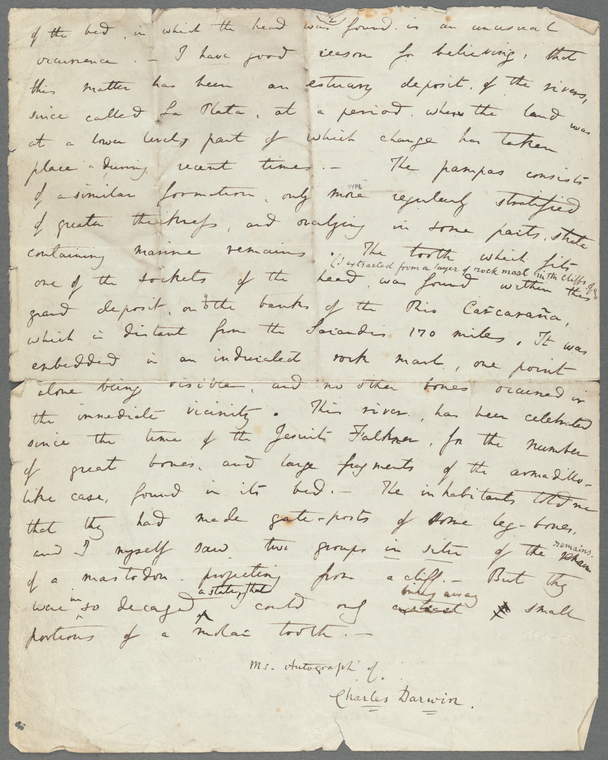 of the bed, in which the head was found is an unusual
occurrence. — I have good reason for believing, that
this matter has been an estuary deposit, of the rivers,
since called La Plata, at a period, when the land was
at a lower level, part of which change has taken
place during recent times. — The pampas consists
of a similar formation, only more regularly stratified
of greater thickness, and overlying in some parts, strata
containing marine remains. The tooth which fits
(I extracted from a layer of rock marl in the cliffs of
one of the sockets of the head was found within this
grand deposit, on the banks of the Rio Carcaraña,
which is distant from the Sarandis 170 miles. It was
embedded in an indurated rock marl, one point
alone being visible, and no other bones occurred in
the immediate vicinity. This river, has been celebrated
since the time of the Jesuit Falkner, for the number
of great bones, and large fragments of the armadillo-
like case, found in its bed. — The inhabitants told me
that they had made gate-posts of some leg-bones,
remains
and I myself saw two groups in situ of the
of a mastodon projecting from a cliff. — But they
in a state, that bring away
were so decayed I could only small
portions of a molar tooth. —
Ms. Autograph of
Charles Darwin.